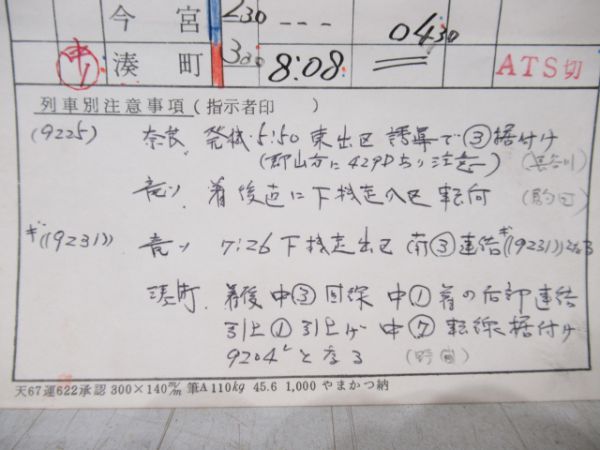 今宮 230 --- 0430
湊町 330 8:08 ATS切
列車別注意事項(指示者印 )
(9225) 奈良 発機 5:50 東出区 誘導で③据付け
(郡山方に429Dあり注意) (長谷川)
竜ソ 着後直に下機走入区 転向
ギ((9231)) 竜ソ 7:26 下機走出区 南③連結 ギ((9231))となる
湊町 着後 中③回線 中①着の后部連結
引上①引上げ 中⑦転線据付け
9204レとなる
天67運622承認 300×140㎜ 筆A110kg 45.6 1,000 やまかつ納